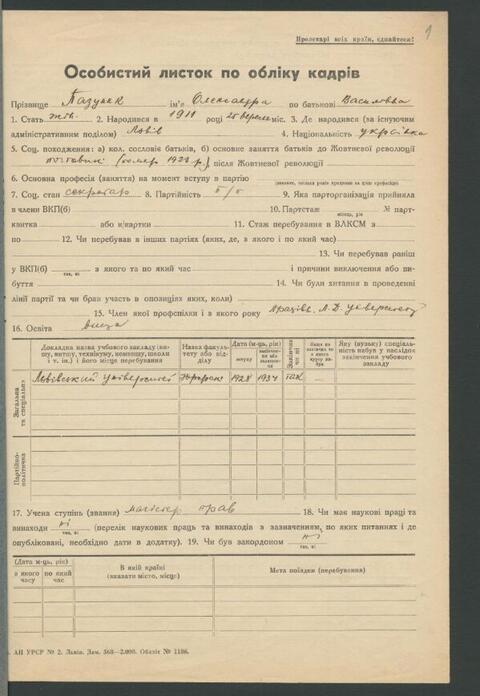 9
Пролетарі всіх країн, єднайтеся!
Особистий листок по обліку кадрів
Прізвище Пазуняк ім'я Олександра по батькові Василівна
1. Стать жін. 2. Народився в 1911 році 25 березня міс. 3. Де народився (за існуючим
адміністративним поділом) Львів 4. Національність українка
5. Соц. походження: а) кол. сословіє батьків, б) основне заняття батьків до Жовтневої революції
(помер 1928 р.) після Жовтневої революції
6. Основна професія (заняття) на момент вступу в партію
7. Соц. стан секретар 8. Партійність б/п 9. Яка парторганізація прийняла
в члени ВКП(б) 10. Партстаж № парт-
місяць, рік
квитка або к/картки 11. Стаж перебування в ВЛКСМ з
по 12. Чи перебував в інших партіях (яких, де, з якого і по який час)
13. Чи перебував раніш
у ВКП(б) з якого та по який час і причини виключення або ви-
так, ні
буття 14. Чи були хитання в проведенні
лінії партії та чи брав участь в опозиціях яких, коли)
15. Член якої профспілки і з якого року
16. Освіта вища
Докладна назва учбового закладу (ви-
шу, втишу, технікуму, комвишу, школи
і т. ін.) і його місце перебування
Назва факуль-
тету або від-
ділу
Дата (м-ць, рік)
вступу
Закінчив
чи ні
Яку (вузьку) спеціаль-
ність набув у наслідок
закінчення учбового
закладу
Загальна
та спеціальна
Львівський університет 1928 1934 так
Партійно-
політична
17. Учена ступінь (звання) магістер прав 18. Чи має наукові праці та
винаходи ні (перелік наукових праць та винаходів з зазначенням, по яких питаннях і де
так, ні
опубліковані, необхідно дати в додатку). 19. Чи був закордоном ні
так, ні
(Дата м-ць, рік)
з якого
часу
по який
час
В якій країні
(вказати місто, місце)
Мета поїздки (перебування)
АН УРСР № 2. Львів. Зам. 568—2.000. Обліт № 1186.